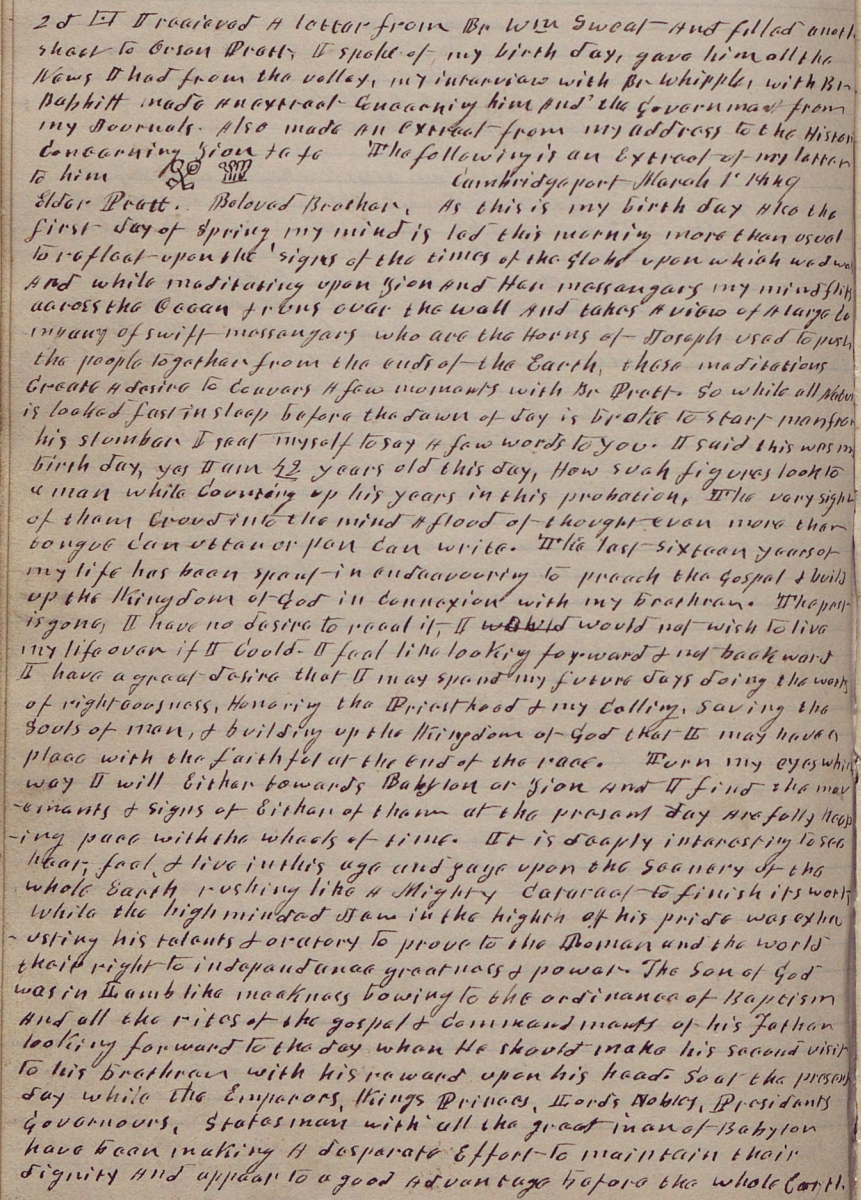 2d I received A letter from Br Wm Sweat And filled anoth
sheet to Orson Pratt, I spoke of my birth day, gave him all the
News I had from the valley, my interview with Br Whipple, with Br
Babbitt made an extract Concerning him And the Government from
my Journals. Also made an extract from my address to the Histor
Concerning Zion &c &c The following is an Extract of my letter
to him Cambridgeport March 1st 1849
Elder Pratt. Beloved Brother, As this is my birth day Also the
first day of Spring my mind is led this morning more than usual
to reflect upon the signs of the times of the Globe upon which we dwel
And while meditating upon Zion And Her massengers my mind flits
across the Ocean & runs over the wall And takes A view of A large Co
mpany of swift massengers who are the Horns of Joseph used to push
the people together from the ends of the Earth, these meditations
Create A desire to Convers A few moments with Br Pratt. So while all Natur
is locked fast in sleep before the dawn of day is broke to start man from
his slumber I seat myself to say A few words to You. I said this was my
birth day, yes I am 42 years old this day, How such figures look to
a man while Counting up his years in this probation, The very sight
of them Croud into the mind A flood of thought even more than
tongue Can utter or pen Can write. The last sixteen years of
my life has been spent in endeavouring to preach the Gospel & build
up the Kingdom of God in Connexion with my brethren. The past
is gone, I have no desire to recal it, I would would not wish to live
my life over if I Could. I feel like looking forward & not backward
I have a great desire that I may spend my future days doing the works
of righteousness, Honoring the Priesthood & my Calling, Saving the
Souls of men, & building up the Kingdom of God that I may have a
place with the faithful at the end of the race. Turn my eyes which
way I will Either towards Babylon or Zion And I find the mov
-ements & signs of Either of them at the present day Are fully keep
-ing pace with the wheels of time. It is deeply interesting to see
hear, feel, & live in this age and gaze upon the Scenery of the
whole Earth rushing like A Mighty Cataract to finish its work
While the high minded Jew in the highth of his pride was exha
-usting his talents & oratory to prove to the Roman and the world
their right to independance greatness & power. The Son of God
was in Lamb like meekness bowing to the ordinance of Baptism
And all the rites of the gospel & Commandments of his Father
looking forward to the day when He should make his second visit
to his brethren with his reward upon his head. So at the present
day while the Emperors, Kings Princes, Lords Nobles, Presidents
Governours, Statesman with all the great men of Babylon
have been making A desperate Effort to maintain their
dignity And appear to a good Advantage before the whole Earth